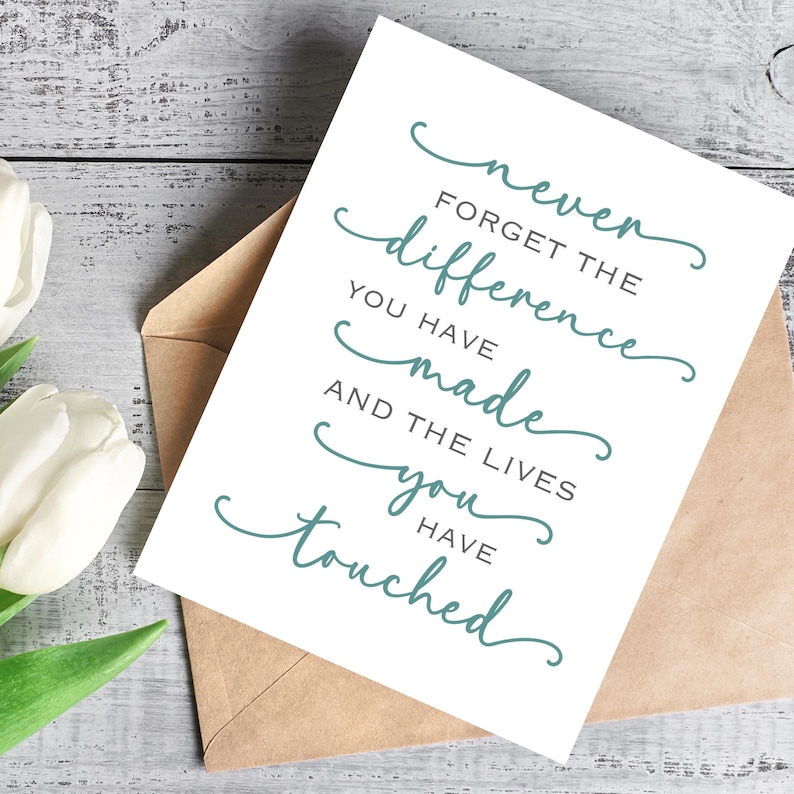 never
FORGET THE
difference
YOU HAVE
made
AND THE LIVES
you
HAVE
touched